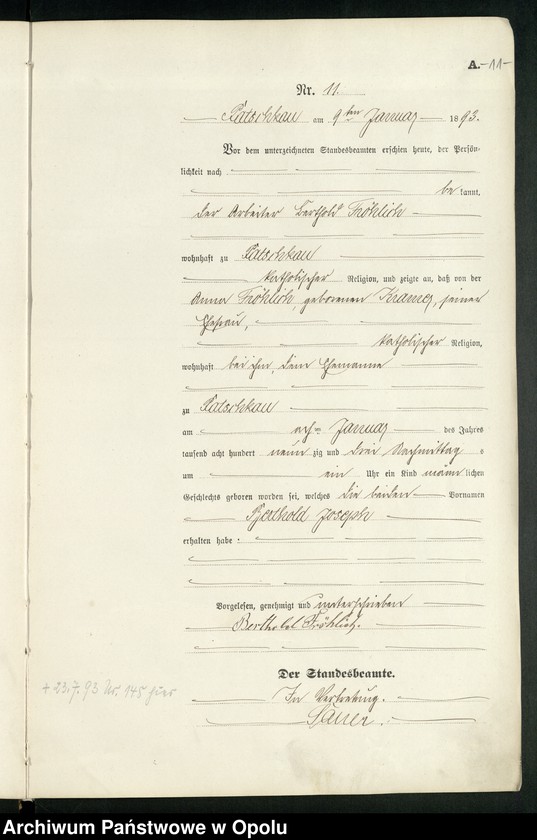 A. -11-
Nr. 11.
Patschkau am 9ten Januar 1893.
Vor dem unterzeichneten Standesbeamten erschien heute, der Persön-
lichkeit nach
be kannt,
der Arbeiter Berthold Fröhlich
wohnhaft zu Patschkau
katholischer Religion, und zeigte an, daß von der
Anna Fröhlich, geborenen Kramer, seiner
Ehefrau,
katholischer Religion,
wohnhaft bei ihm, dem Ehemanne
zu Patschkau
am acht Januar des Jahres
tausend acht hundert neun zig und drei Nachmittag s
um ein Uhr ein Kind männ lichen
Geschlechts geboren worden sei, welches die beiden Vornamen
Berthold Joseph
erhalten habe:
Vorgelesen, genehmigt und unterschrieben
Berthold Fröhlich.
Der Standesbeamte.
+ 23.7.93 Nr. 145 hier
In Vertretung.
Archiwum Państwowe w Opolu